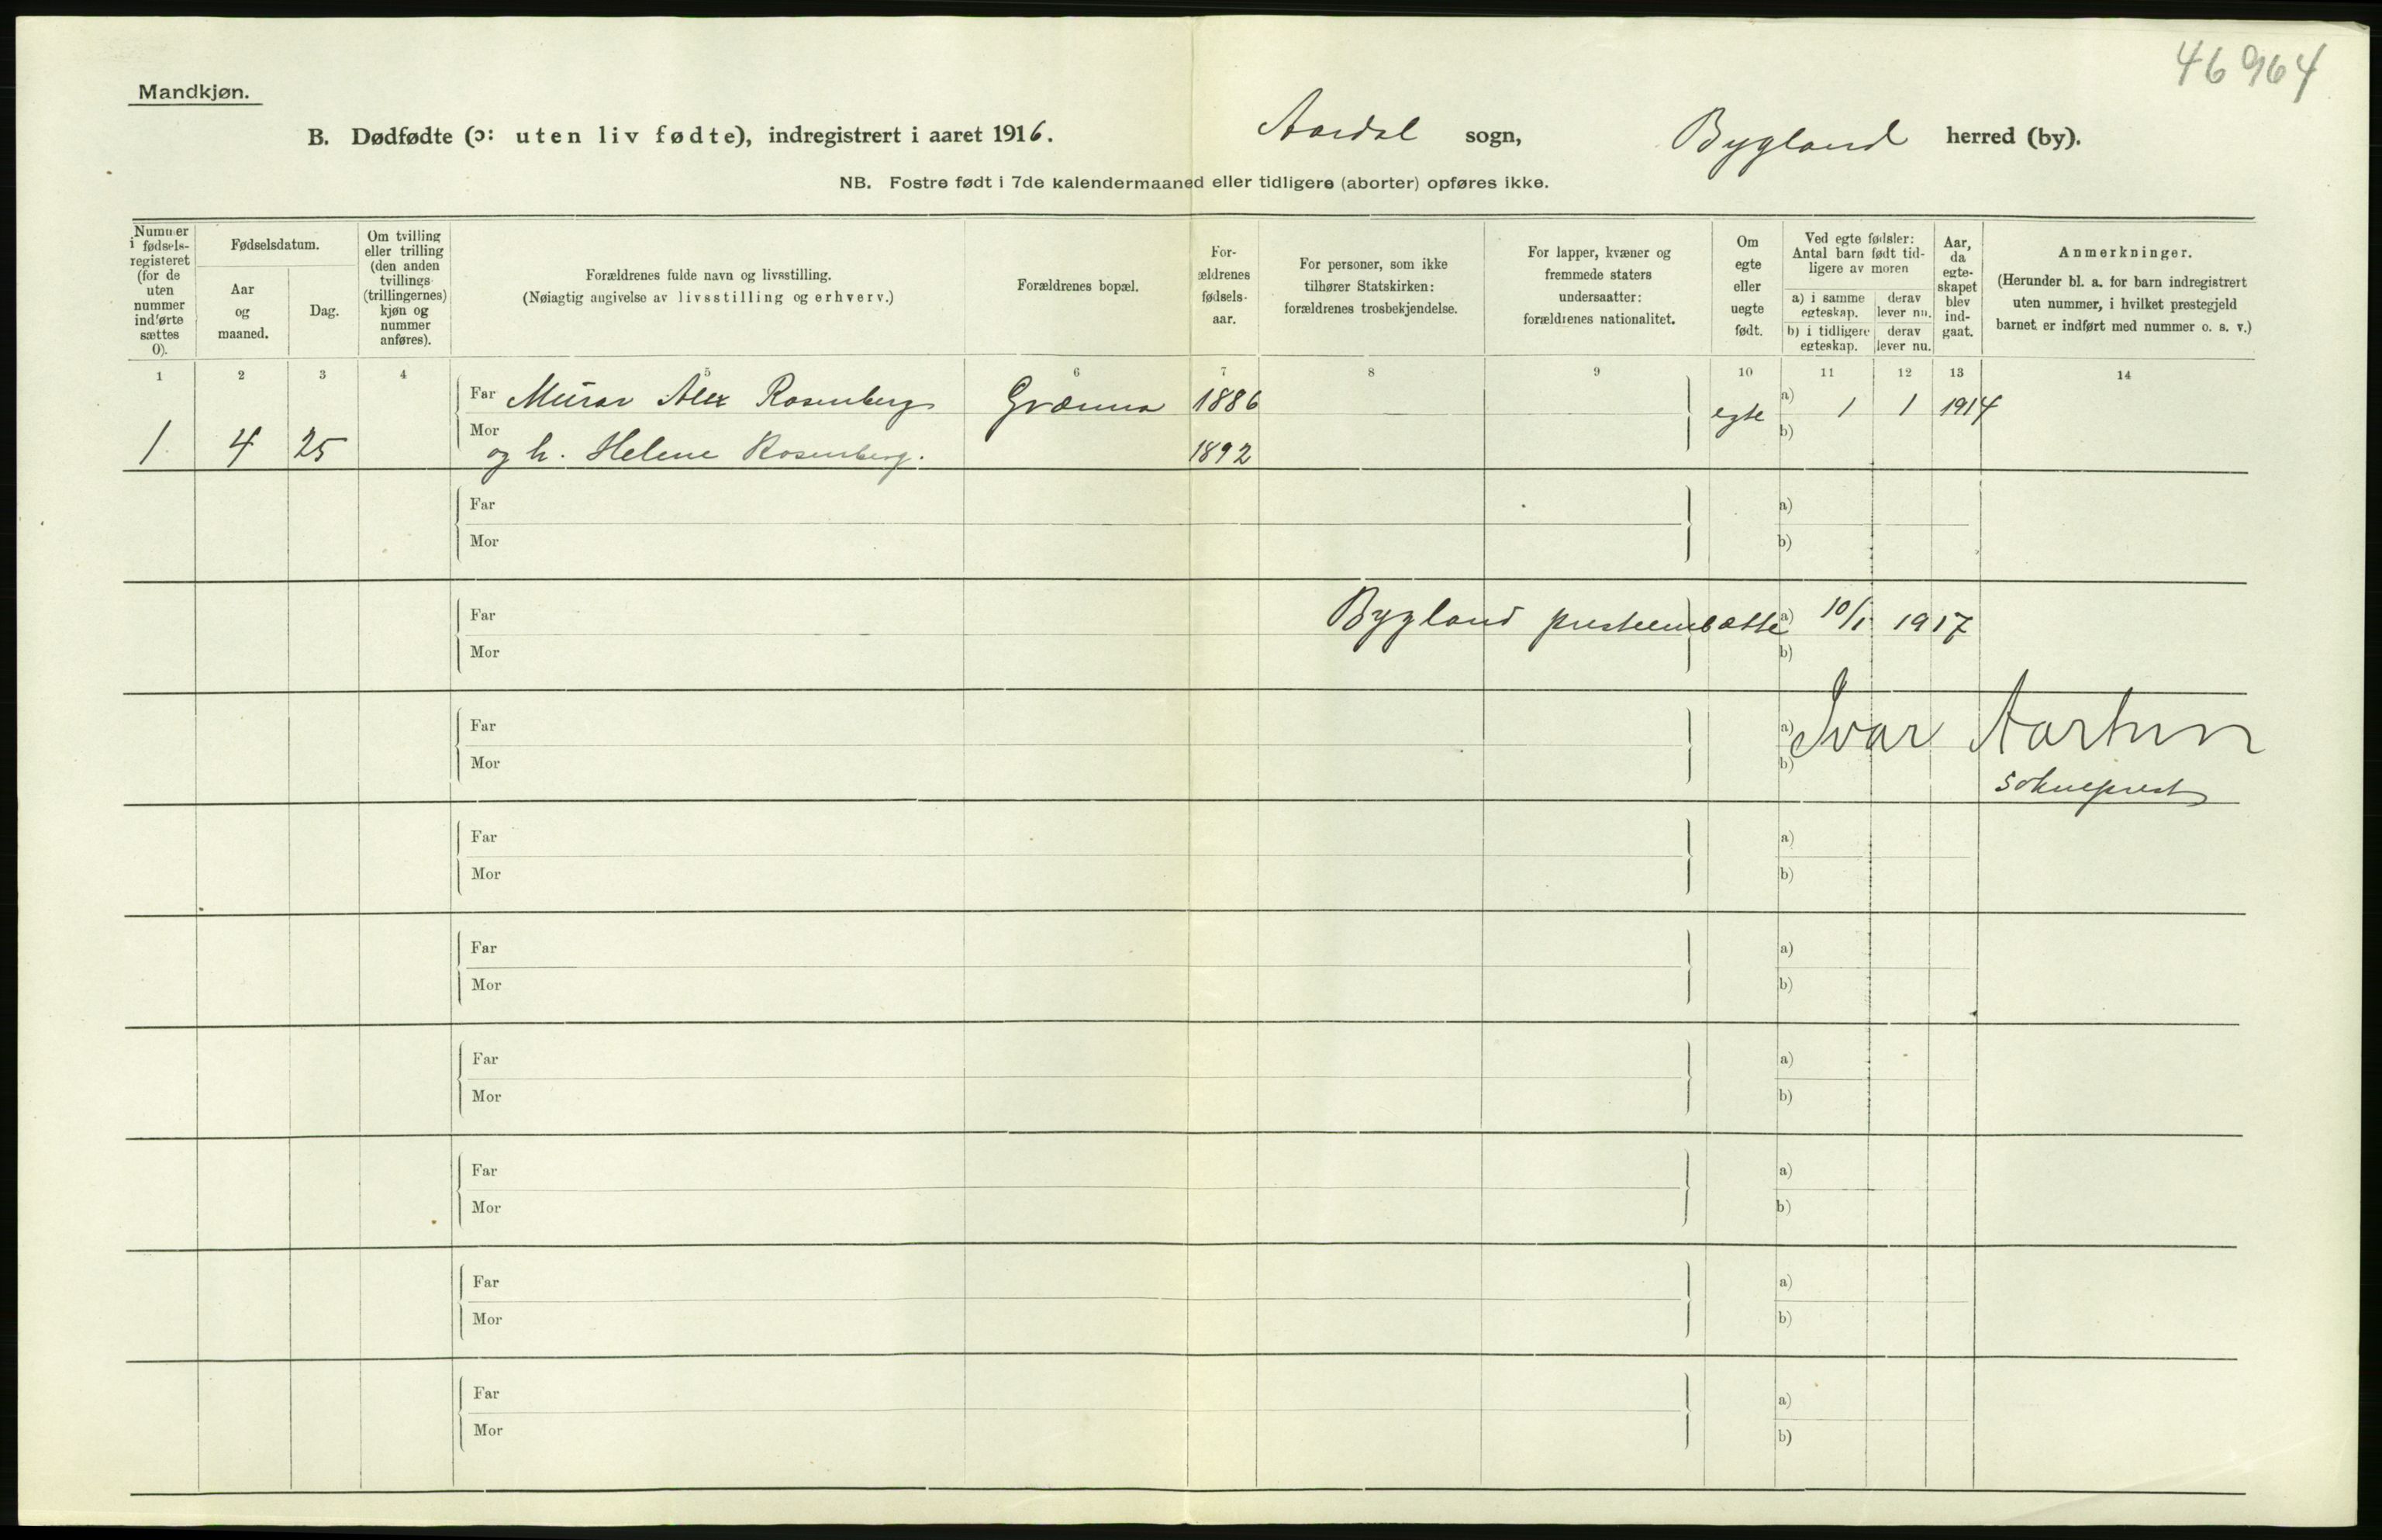 46964
Mandkjøn.
B. Dødfødte (ɔ: uten liv fødte), indregistrert i aaret 1916. Aardal sogn, Bygland herred (by).
NB. Fostre født i 7de kalendermaaned eller tidligere (aborter) opføres ikke.
Nummer i fødsels-registeret (for de uten nummer indførte sættes 0).
Fødselsdatum.
Aar og maaned.
Dag.
Om tvilling eller trilling (den anden tvillings (trillingernes) kjøn og nummer anføres).
Forældrenes fulde navn og livsstilling.
(Nøiagtig angivelse av livsstilling og erhverv.)
Forældrenes bopæl.
For-ældrenes fødsels-aar.
For personer, som ikke tilhører Statskirken: forældrenes trosbekjendelse.
For lapper, kvæner og fremmede staters undersaatter: forældrenes nationalitet.
Om egte eller uegte født.
Ved egte fødsler: Antal barn født tid-ligere av moren
a) i samme egteskap.
derav lever nu.
b) i tidligere egteskap.
derav lever nu.
Aar, da egte-skapet blev ind-gaat.
Anmerkninger.
(Herunder bl. a. for barn indregistrert uten nummer, i hvilket prestegjeld barnet er indført med nummer o. s. v.)
1 2 3 4 5 6 7 8 9 10 11 12 13 14
Far Murar Alex Rosenberg 1886 — — egte a) 1 1 1914
1 4 25 Mor og h. Helene Rosenberg. 1892 b)
Far a)
Mor b)
Far Bygland presteembætte a) 10/1 1917
Mor b)
Far a) Ivar Aartun
Mor b)
sokneprest
Far a)
Mor b)
Far a)
Mor b)
Far a)
Mor b)
Far a)
Mor b)
Far a)
Mor b)
Far a)
Mor b)